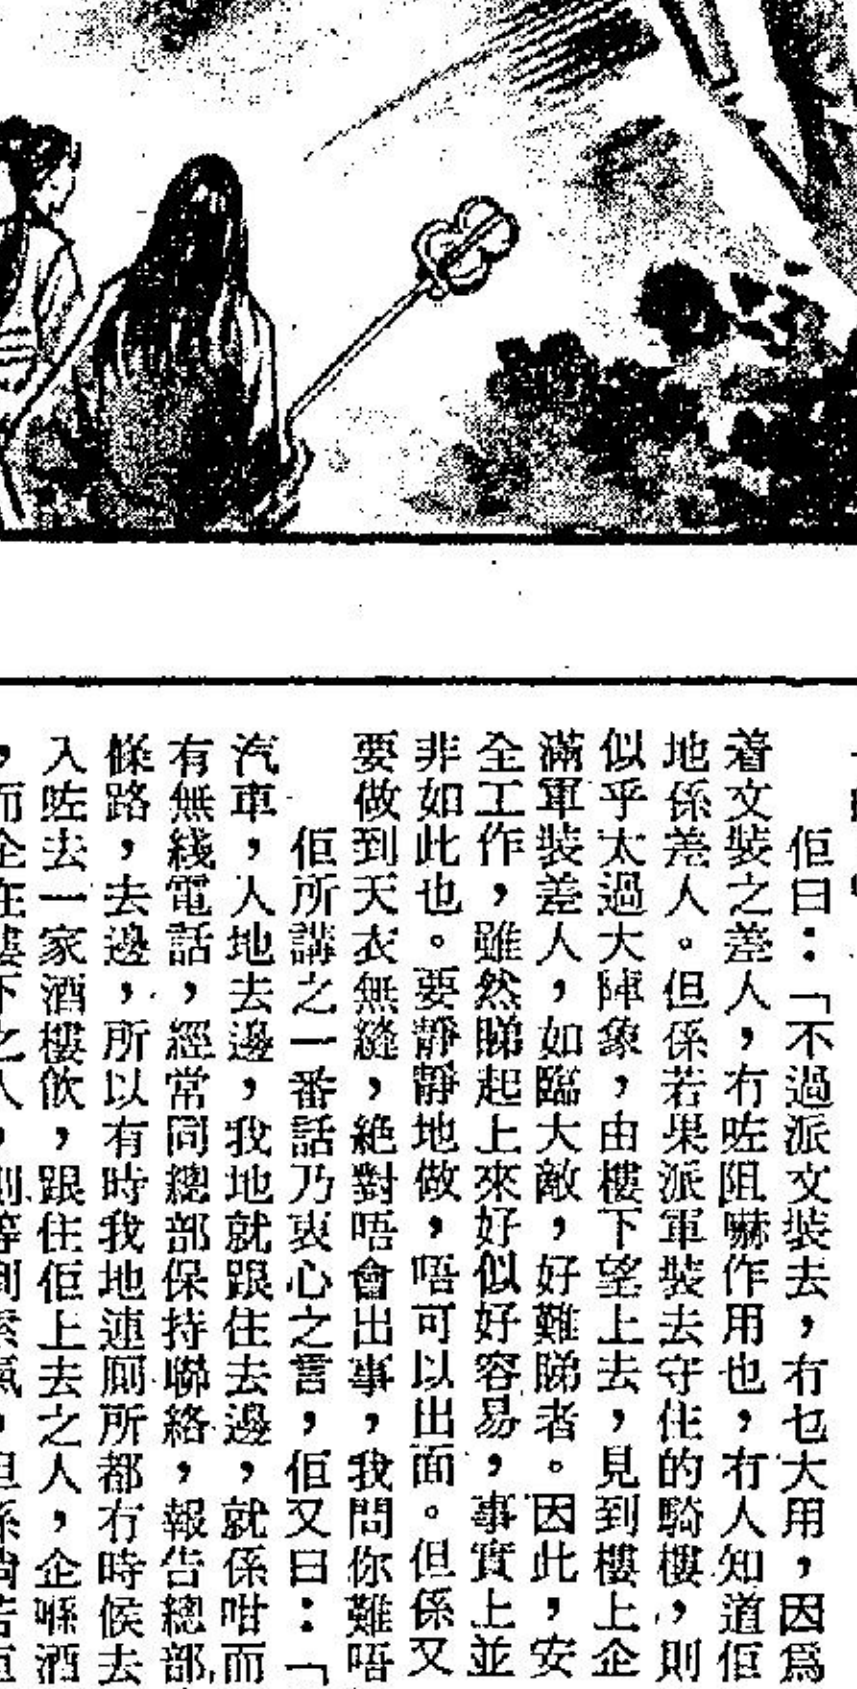 佢曰：「不過派文裝去，冇乜大用，因爲
着文裝之差人，冇咗阻嚇作用也，冇人知道佢
地係差人。但係若果派軍裝去守住的騎樓，則
似乎太過大陣象，由樓下望上去，見到樓上企
滿軍裝差人，如臨大敵，好難睇者。因此，安
全工作，雖然睇起上來好似好容易，事實上並
非如此也。要靜靜地做，唔可以出面。但係又
要做到天衣無縫，絕對唔會出事，我問你難唔
佢所講之一番話乃衷心之言，佢又曰：「
汽車，人地去邊，我地就跟住去邊，就係咁而
有無綫電話，經常同總部保持聯絡，報告總部，
條路，去邊，所以有時我地連厠所都冇時候去
入咗去一家酒樓飲，跟住佢上去之人，企喺酒